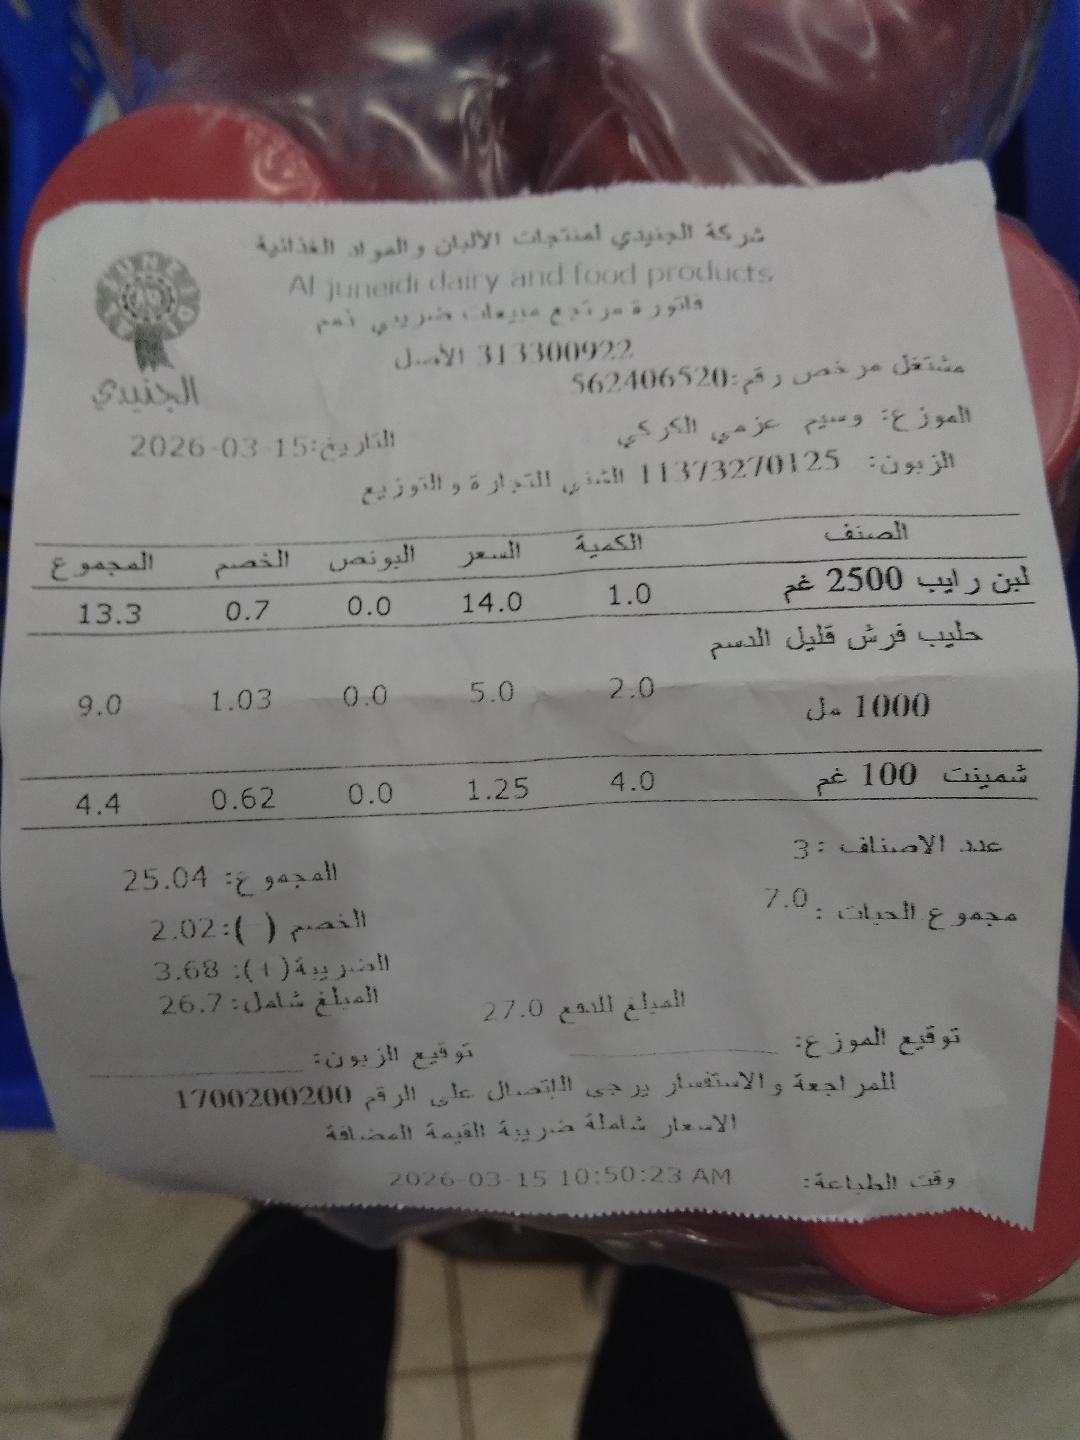 شركة الجنيدي لمنتجات الألبان والمواد الغذائية
Al juneidi dairy and food products
JUNEIDI
الجنيدي
فاتورة مرتجع مبيعات ضريبي ذمم
313300922 الأصل
مشتغل مرخص رقم:562406520
الموزع: وسيم عزمي الكركي
التاريخ:2026-03-15
الزبون: 11373270125 الشني للتجارة والتوزيع
الصنف الكمية السعر البونص الخصم المجموع
لبن رايب 2500 غم 1.0 14.0 0.0 0.7 13.3
حليب فرش قليل الدسم
1000 مل 2.0 5.0 0.0 1.03 9.0
شمينت 100 غم 4.0 1.25 0.0 0.62 4.4
عدد الاصناف :3
المجموع: 25.04
مجموع الحبات : 7.0
الخصم ( ):2.02
الضريبة(+): 3.68
المبلغ شامل: 26.7
المبلغ للدفع 27.0
توقيع الموزع:
توقيع الزبون:
للمراجعة والاستفسار يرجى الإتصال على الرقم 1700200200
الاسعار شاملة ضريبة القيمة المضافة
وقت الطباعة: 2026-03-15 10:50:23 AM